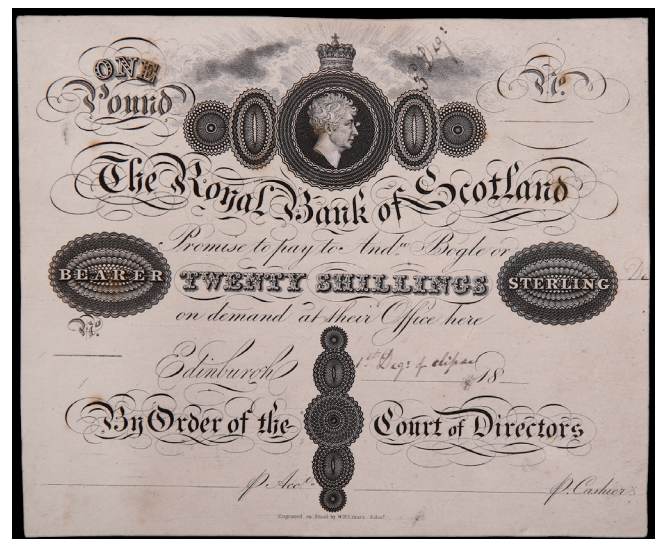 ONE
Pound
3d Degr.
No.
The Royal Bank of Scotland
Promise to pay to Andw. Bogle or
BEARER TWENTY SHILLINGS STERLING
on demand at their Office here
No.
Edinburgh 1st Degr. of 18
By Order of the Court of Directors
p. Acct. p. Cashier
Engraved on Steel by W.H. Lizars. Edinr.